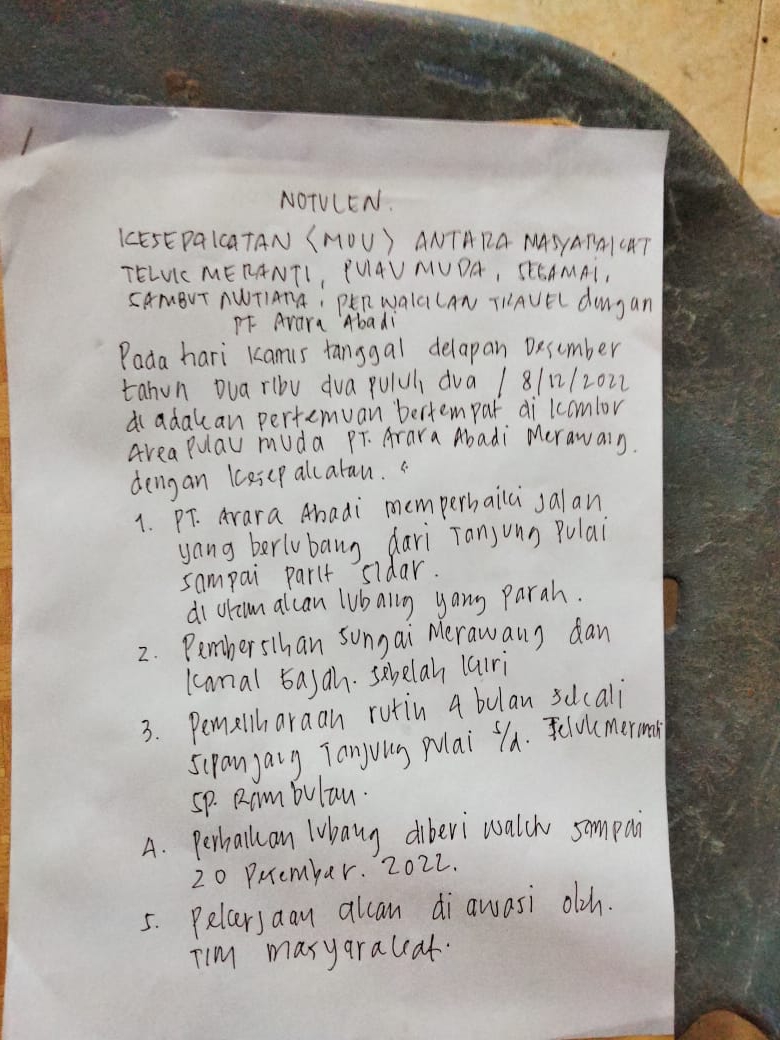 NOTULEN.
KESEPAKATAN <MOU> ANTARA MASYARAKAT
TELUK MERANTI, PULAU MUDA, SEGAMAI,
SAMBUT MUTIARA, PERWAKILAN TRAVEL dengan
PT Arara Abadi
Pada hari kamis tanggal delapan Desember
tahun Dua ribu dua puluh dua / 8/12/2022
di adakan pertemuan bertempat di kantor
Area Pulau muda PT. Arara Abadi Merawang.
dengan kesepakatan.
1. PT. Arara Abadi memperbaiki jalan
yang berlubang dari Tanjung Pulai
sampai parit sidar.
di utamakan lubang yang parah.
2. Pembersihan sungai Merawang dan
kanal Gajah. sebelah kiri
3. Pemeliharaan rutin 4 bulan sekali
sepanjang Tanjung Pulai s/d. Teluk meranti
SP. Rambutan.
4. Perbaikan lubang diberi waktu sampai
20 Desember. 2022.
5. Pekerjaan akan di awasi oleh.
TIM masyarakat.